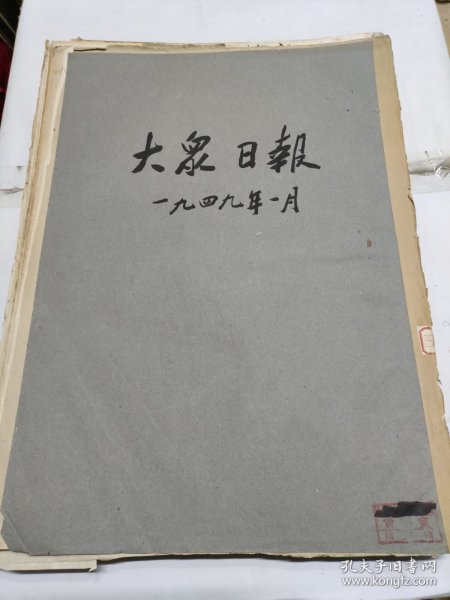 大眾日報
一九四九年一月
孔夫子旧书网
www.kongfz.com